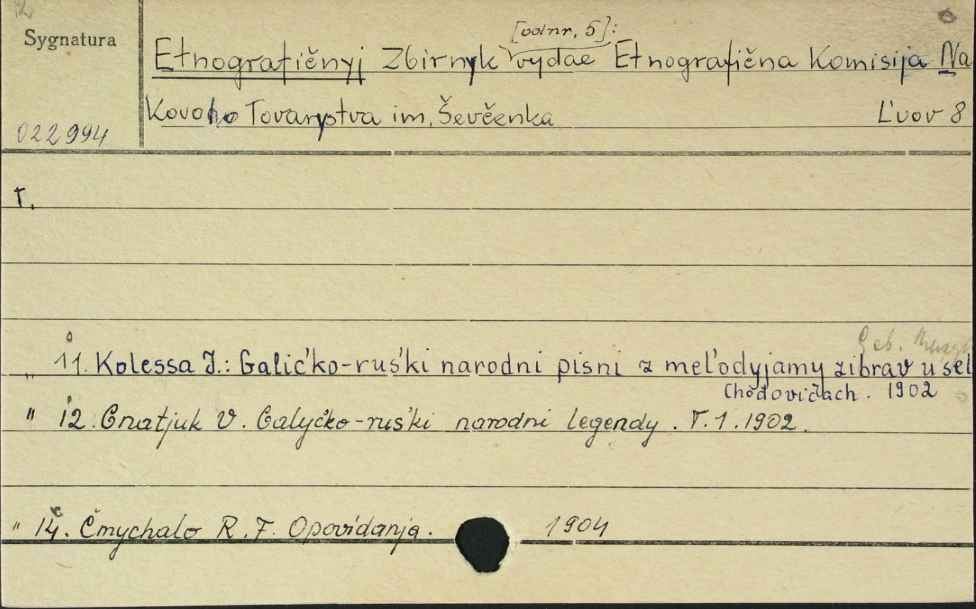 Sygnatura
[odnr. 5]:
Etnografičnyj Zbirnyk vydae Etnografična Komisija Na
Kovoho Tovarystva im. Ševčenka L'vov 8
022994
T.
11. Kolessa J.: Galic'ko-rus'ki narodni pisni z mel'odyjamy zibrav u sel
Chodovičach. 1902
" 12. Gnatjuk V. Galyc'ko-rus'ki narodni legendy. T.1.1902.
" 14. Čmychalo R.F. Opovidanja. 1904